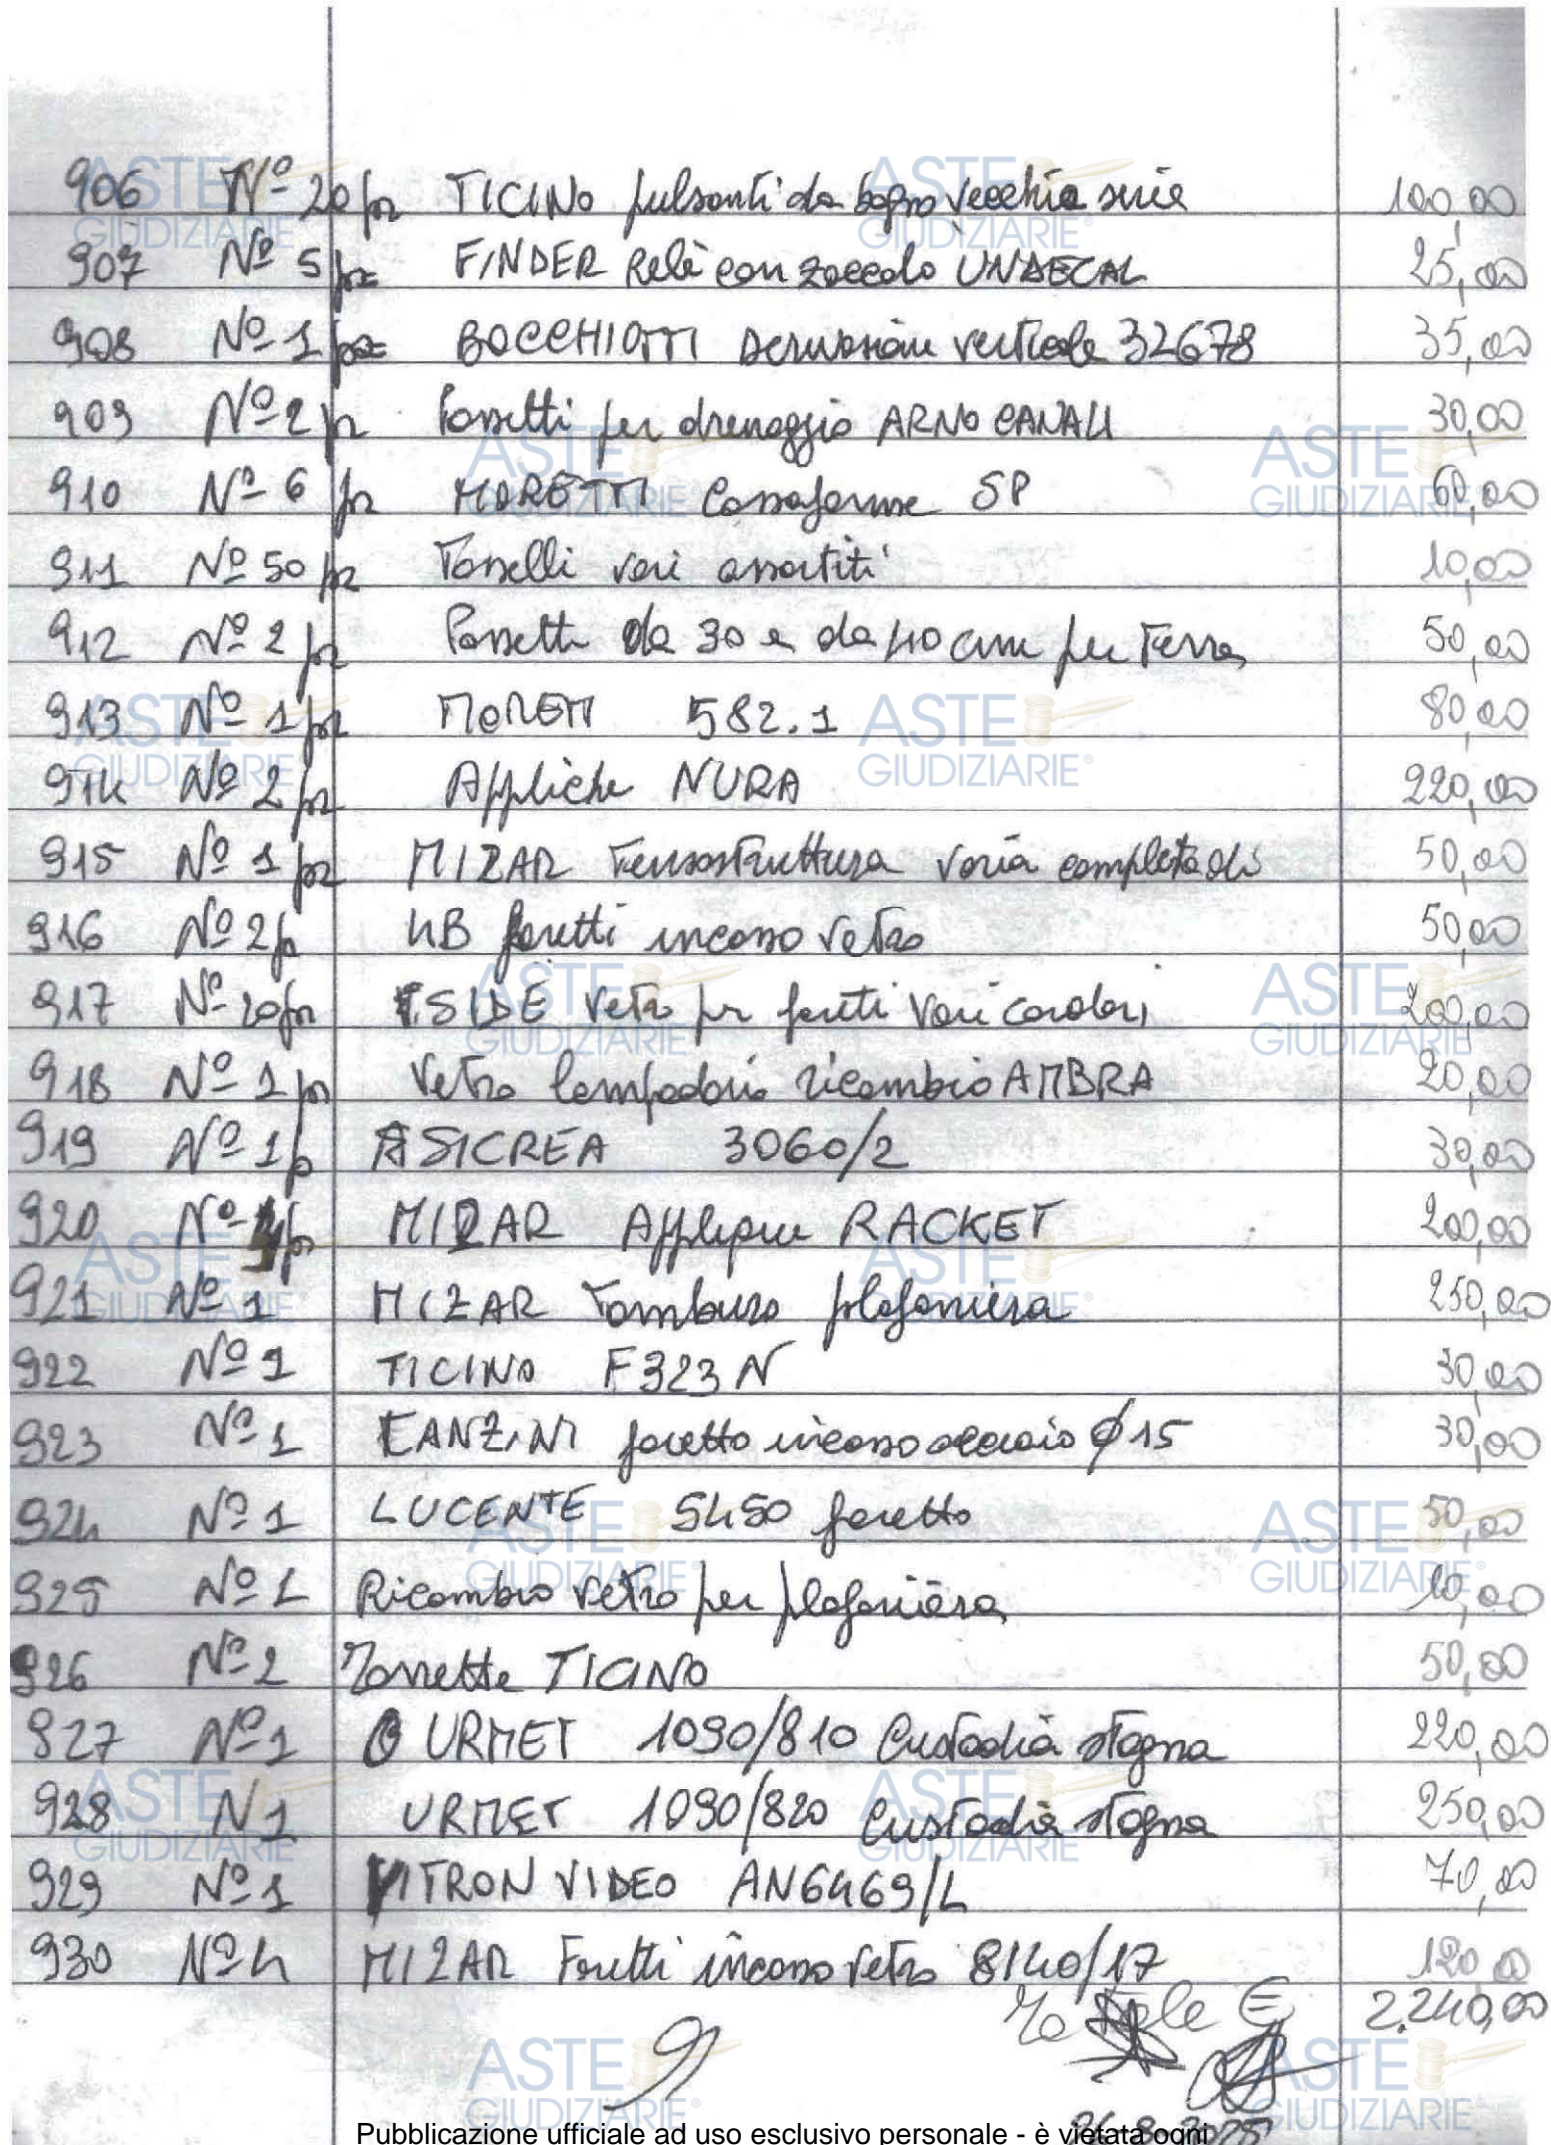 906 Nº 20 pz TICINO pulsanti da bagno vecchia serie 100,00
907 Nº 5 pz FINDER Relè con zoccolo UNDECAL 25,00
908 Nº 1 pz BOCCHIOTTI Derivazione verticale 32678 35,00
909 Nº 2 pz Pozzetti per drenaggio ARNO CANALI 30,00
910 Nº 6 pz MORETTI Cassaforme SP 60,00
911 Nº 50 pz Tasselli vari assortiti 10,00
912 Nº 2 pz Pozzetti da 30 e da 40 cm per Terra 50,00
913 Nº 1 pz MORETTI 582.1 80,00
914 Nº 2 pz Appliche NURA 220,00
915 Nº 1 pz MIZAR Tensostruttura varia completa di 50,00
916 Nº 2 p 4B faretti incasso vetro 50,00
917 Nº 20 pz ISIDE vetri per faretti vari 200,00
918 Nº 1 pz Vetro lampadario ricambio AMBRA 20,00
919 Nº 1 p ASICREA 3060/2 30,00
920 Nº pz MIZAR Applique RACKET 200,00
921 Nº 1 MIZAR Tamburo plafoniera 250,00
922 Nº 1 TICINO F323N 30,00
923 Nº 1 faretto incasso acciaio ø 15 30,00
924 Nº 1 LUCENTE 5450 faretto 50,00
925 Nº 1 Ricambio vetro per plafoniera 10,00
926 Nº 2 Torrette TICINO 50,00
927 Nº 1 URMET 1090/810 Custodia stagna 220,00
928 N 1 URMET 1090/820 Custodia stagna 250,00
929 Nº 1 VITRON VIDEO AN6469/L 70,00
930 Nº 4 MIZAR Faretti incasso vetro 8140/17 120,00
Totale € 2.240,00
26.8.2025
Pubblicazione ufficiale ad uso esclusivo personale - è vietata ogni
ASTE GIUDIZIARIE®